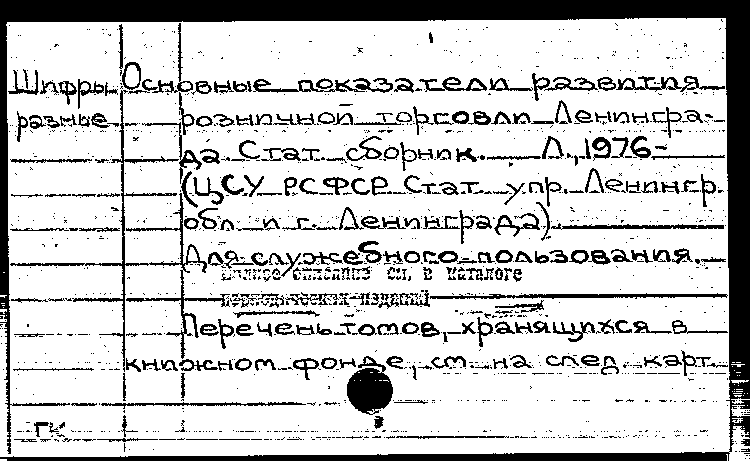 Шифры Основные показатели развития
разные розничной торговли Ленингра-
да. Стат. сборник. Л., 1976-
(ЦСУ РСФСР Стат. упр. Ленингр.
обл. и г. Ленинграда).
Для служебного пользования.
Полное описание см. в каталоге
периодических изданий
Перечень томов, хранящихся в
книжном фонде, см. на след. карт.
ГК